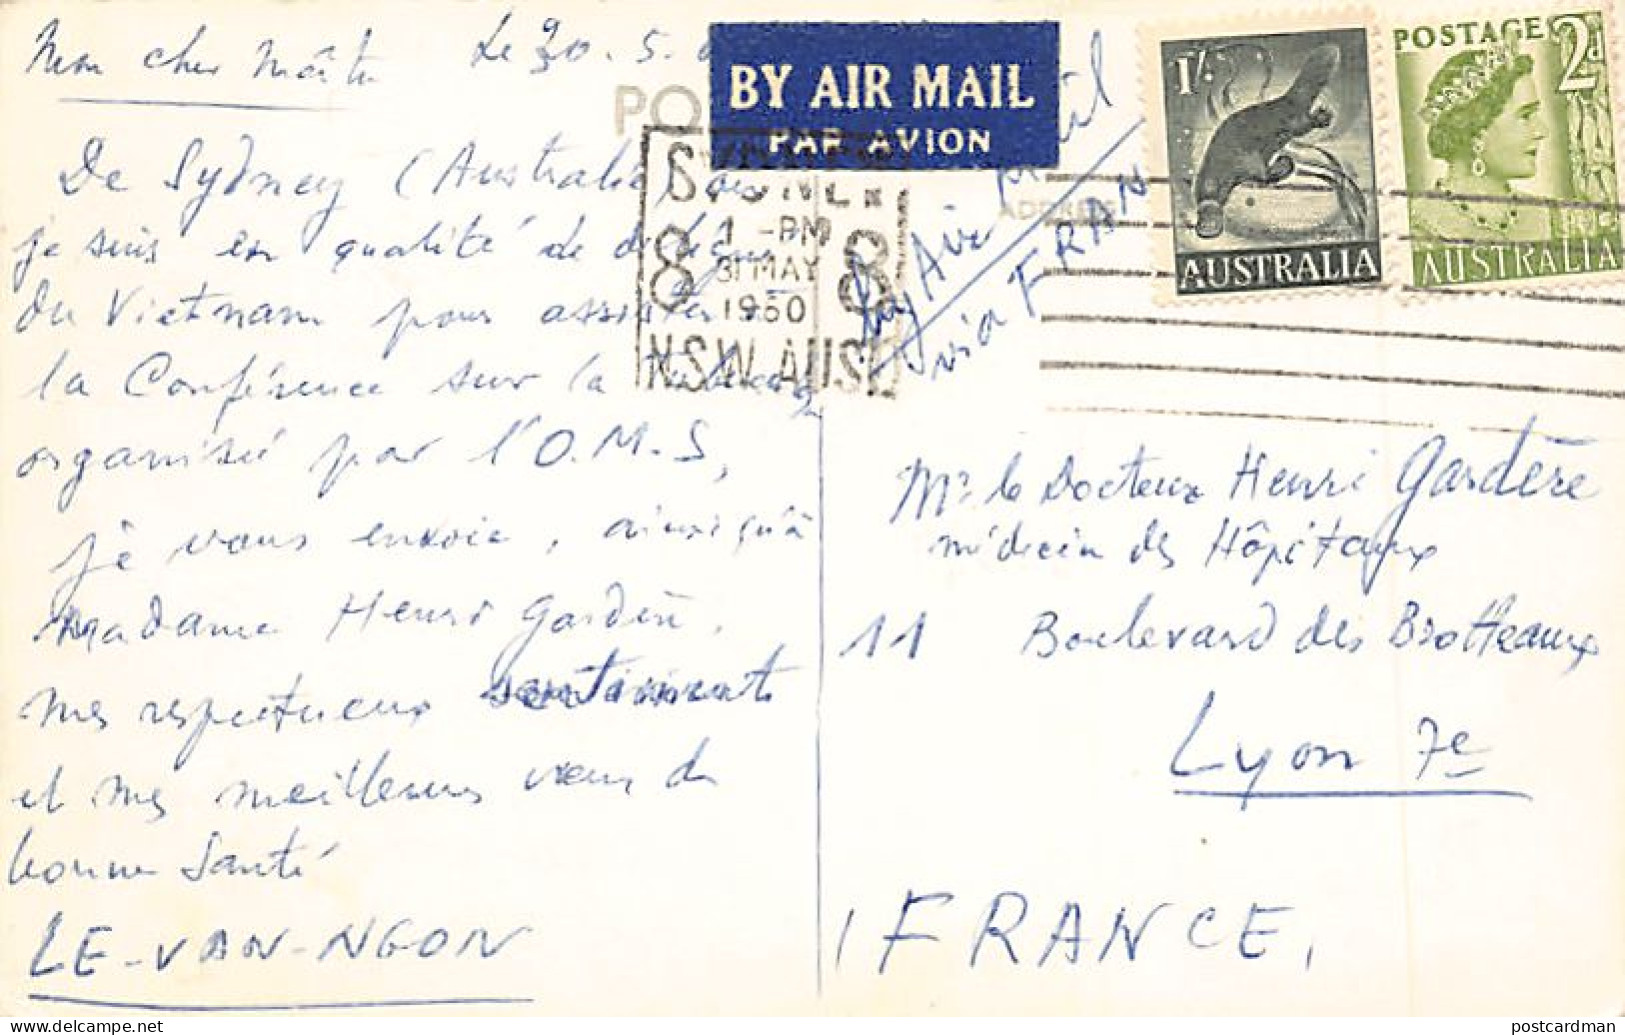 Mon cher Maître
Le 30.5.
BY AIR MAIL
PAR AVION
De Sydney (Australie) où
je suis en qualité de délégué
du Vietnam pour assister à
la Conférence sur la
organisée par l'O.M.S,
je vous envoie, ainsi qu'à
Madame Henri Gardère,
mes respectueux sentiments
et mes meilleurs vœux de
bonne Santé
LE-VAN-NGON
SYDNEY
1 - PM
31 MAY
1960
8 8
N.S.W. AUST
by Avion Mail
via FRAN
ADDRESS
1/-
AUSTRALIA
POSTAGE
2d
AUSTRALIA
Mr le Docteur Henri Gardère
médecin des Hôpitaux
11 Boulevard des Brotteaux
Lyon 7e
FRANCE,
postcardman